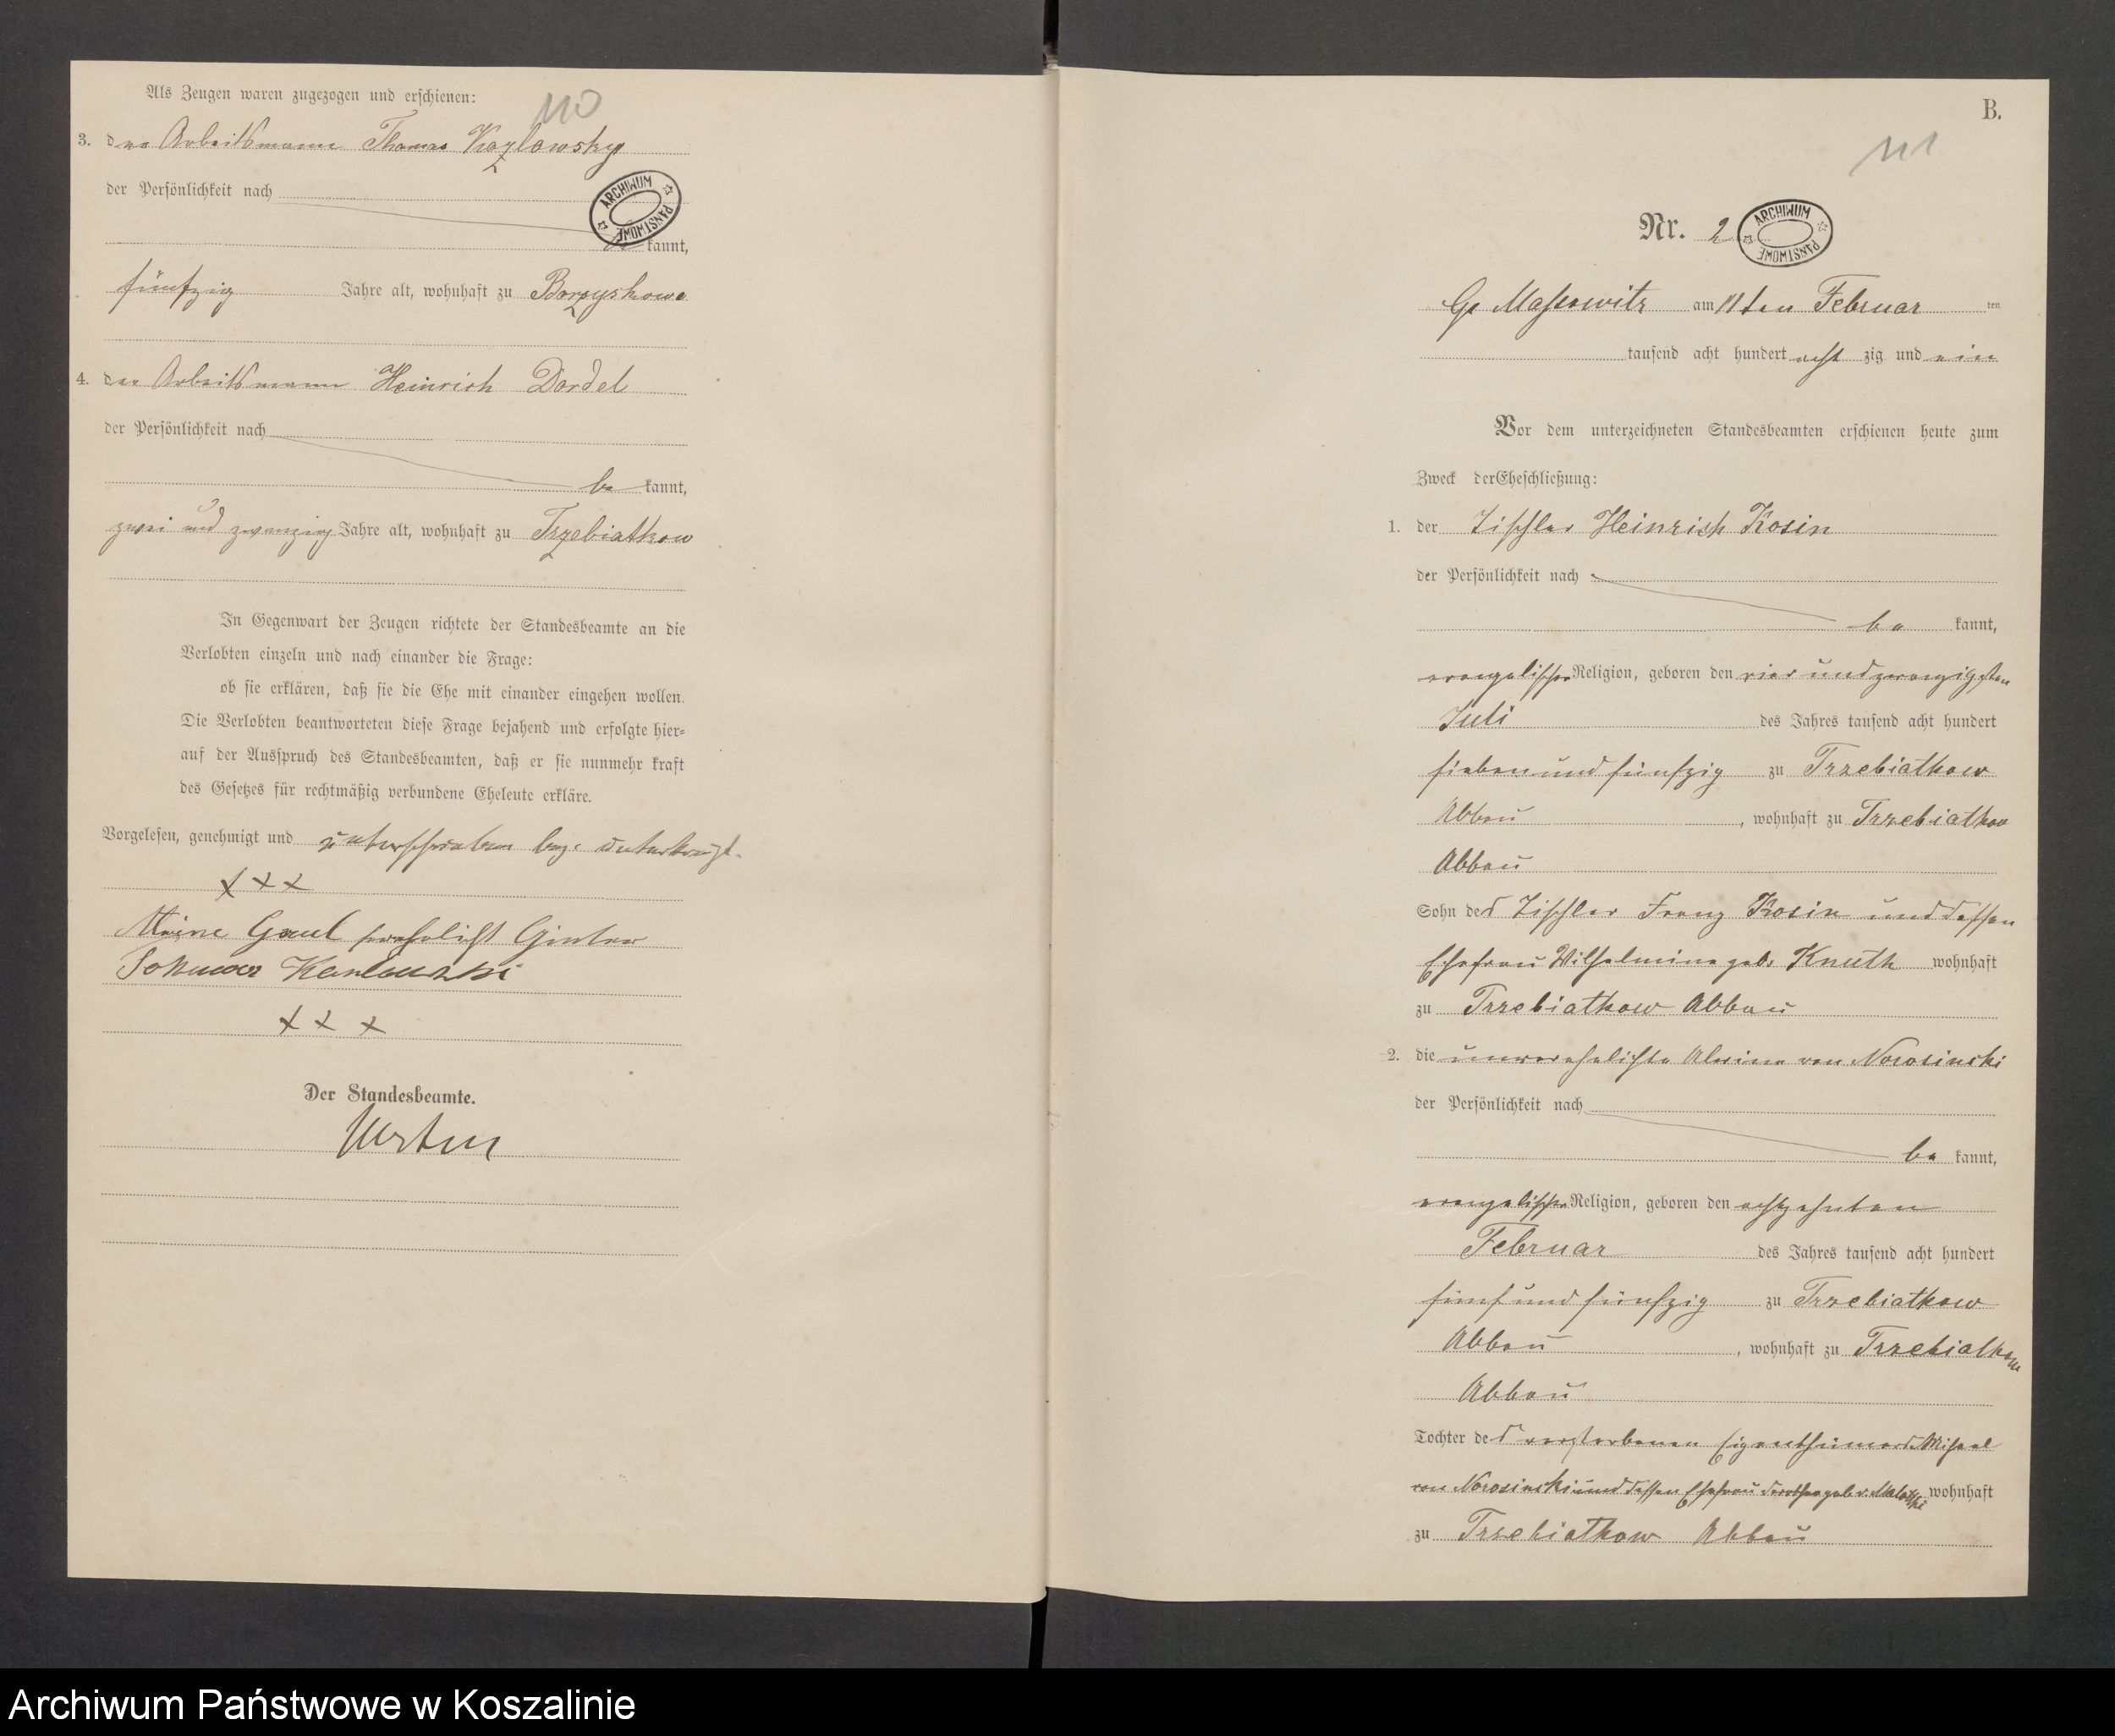 Als Zeugen waren zugezogen und erschienen:
110
3. der Arbeitsmann Thomas Kozlowsky
der Persönlichkeit nach
ARCHIWUM PAŃSTWOWE
be kannt,
fünfzig Jahre alt, wohnhaft zu Borzyskowo
4. der Arbeitsmann Heinrich Dordel
der Persönlichkeit nach
be kannt,
zwei und zwanzig Jahre alt, wohnhaft zu Trzebiatkow
In Gegenwart der Zeugen richtete der Standesbeamte an die
Verlobten einzeln und nach einander die Frage:
ob sie erklären, daß sie die Ehe mit einander eingehen wollen.
Die Verlobten beantworteten diese Frage bejahend und erfolgte hier=
auf der Ausspruch des Standesbeamten, daß er sie nunmehr kraft
des Gesetzes für rechtmäßig verbundene Eheleute erkläre.
Vorgelesen, genehmigt und unterschrieben bez. unterkreuzt.
XXX
Gaul verehelicht
XXX
Der Standesbeamte.
B.
111
Nr. 2
ARCHIWUM PAŃSTWOWE
Gr Massowitz am 11ten Februar ten
tausend acht hundert acht zig und ein
Vor dem unterzeichneten Standesbeamten erschienen heute zum
Zweck der Eheschließung:
1. der Tischler Heinrich Kosin
der Persönlichkeit nach
be kannt,
evangelischer Religion, geboren den vier und zwanzigsten
Juli des Jahres tausend acht hundert
sieben und fünfzig zu Trzebiatkow
Abbau, wohnhaft zu Trzebiatkow
Abbau
Sohn des Tischler Franz Kosin und dessen
Ehefrau Wilhelmine geb. Knuth wohnhaft
zu Trzebiatkow Abbau
2. die unverehelichte Alwine von Norosinski
der Persönlichkeit nach
be kannt,
evangelischer Religion, geboren den achtzehnten
Februar des Jahres tausend acht hundert
fünf und fünfzig zu Trzebiatkow
Abbau, wohnhaft zu Trzebiatkow
Abbau
Tochter des verstorbenen Eigenthümers Michael
von Norosinski und dessen Ehefrau Dorothea geb. v. wohnhaft
zu Trzebiatkow Abbau
Archiwum Państwowe w Koszalinie